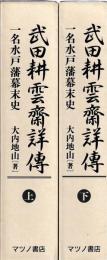 武田耕雲齋詳傳
一名水戸藩幕末史
大内地山(著)
上
マツノ書店
武田耕雲齋詳傳
一名水戸藩幕末史
大内地山(著)
下
マツノ書店